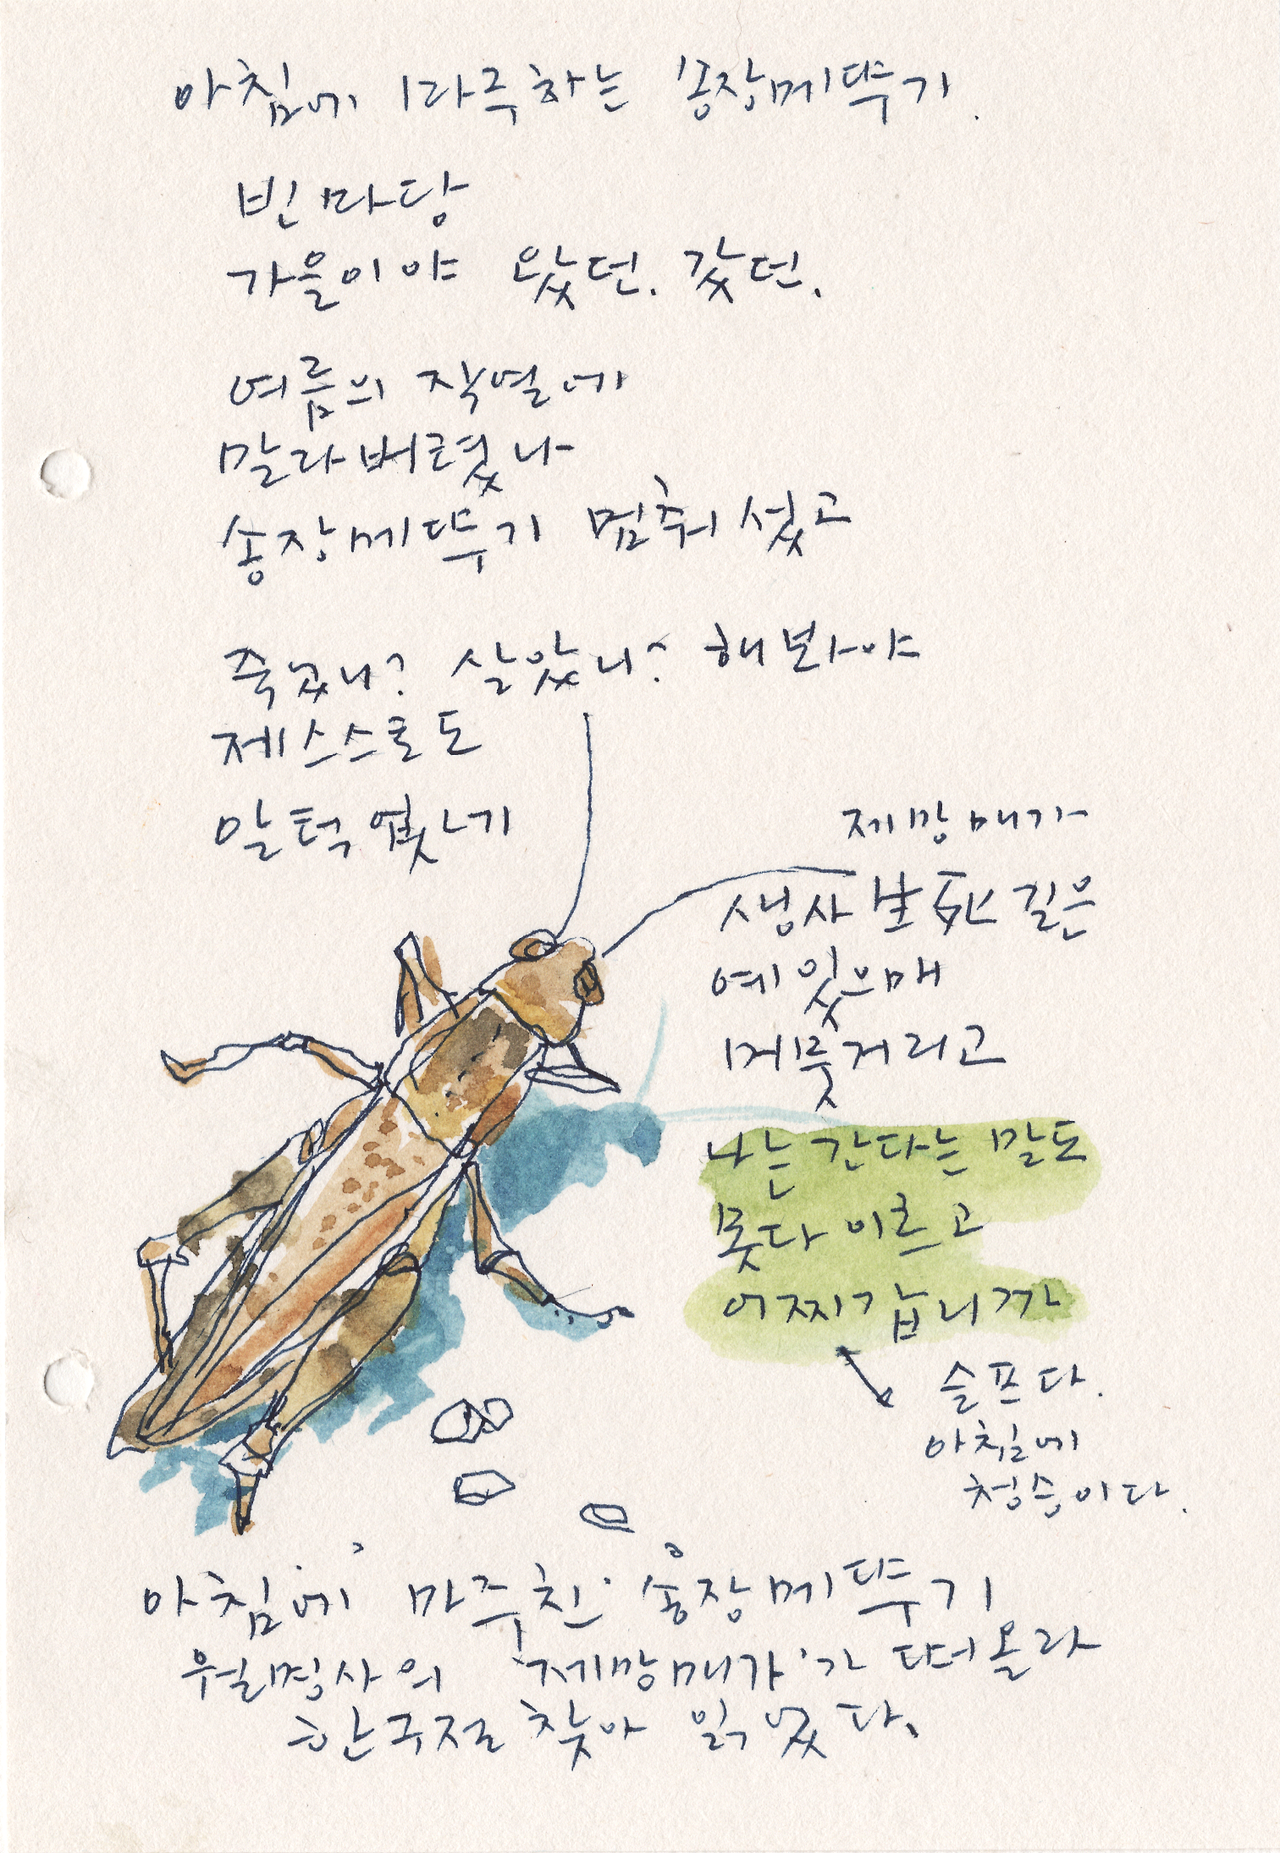 아침에 마주하는 송장메뚜기.
빈 마당
가을이야 왔던. 갔던.
여름의 작열에
말라버렸나
송장메뚜기 멈춰 섰고
죽었니? 살았니? 해봐야
제 스스로도
알턱 없네
제망매가
생사 生死 길은
예 있으매
머뭇거리고
나는 간다는 말도
못다 이르고
어찌 갑니까
슬프다.
아침에
청승이다.
아침에 마주친 송장메뚜기
월명사의 '제망매가'가 떠올라
한구절 찾아 읽었다.